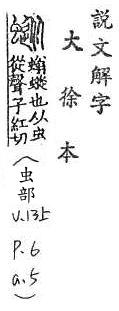 說文解字
大徐本
螉䗥也从虫
從聲子紅切
(虫部
V.13上
P.6
a.5)